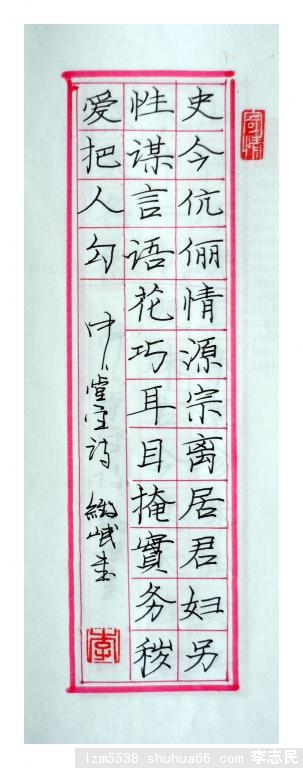 史今伉俪情源宗离居君妇另
性谋言语花巧耳目掩實务秽
爱把人勾
李
lzm5538.shuhua66.com 李志民